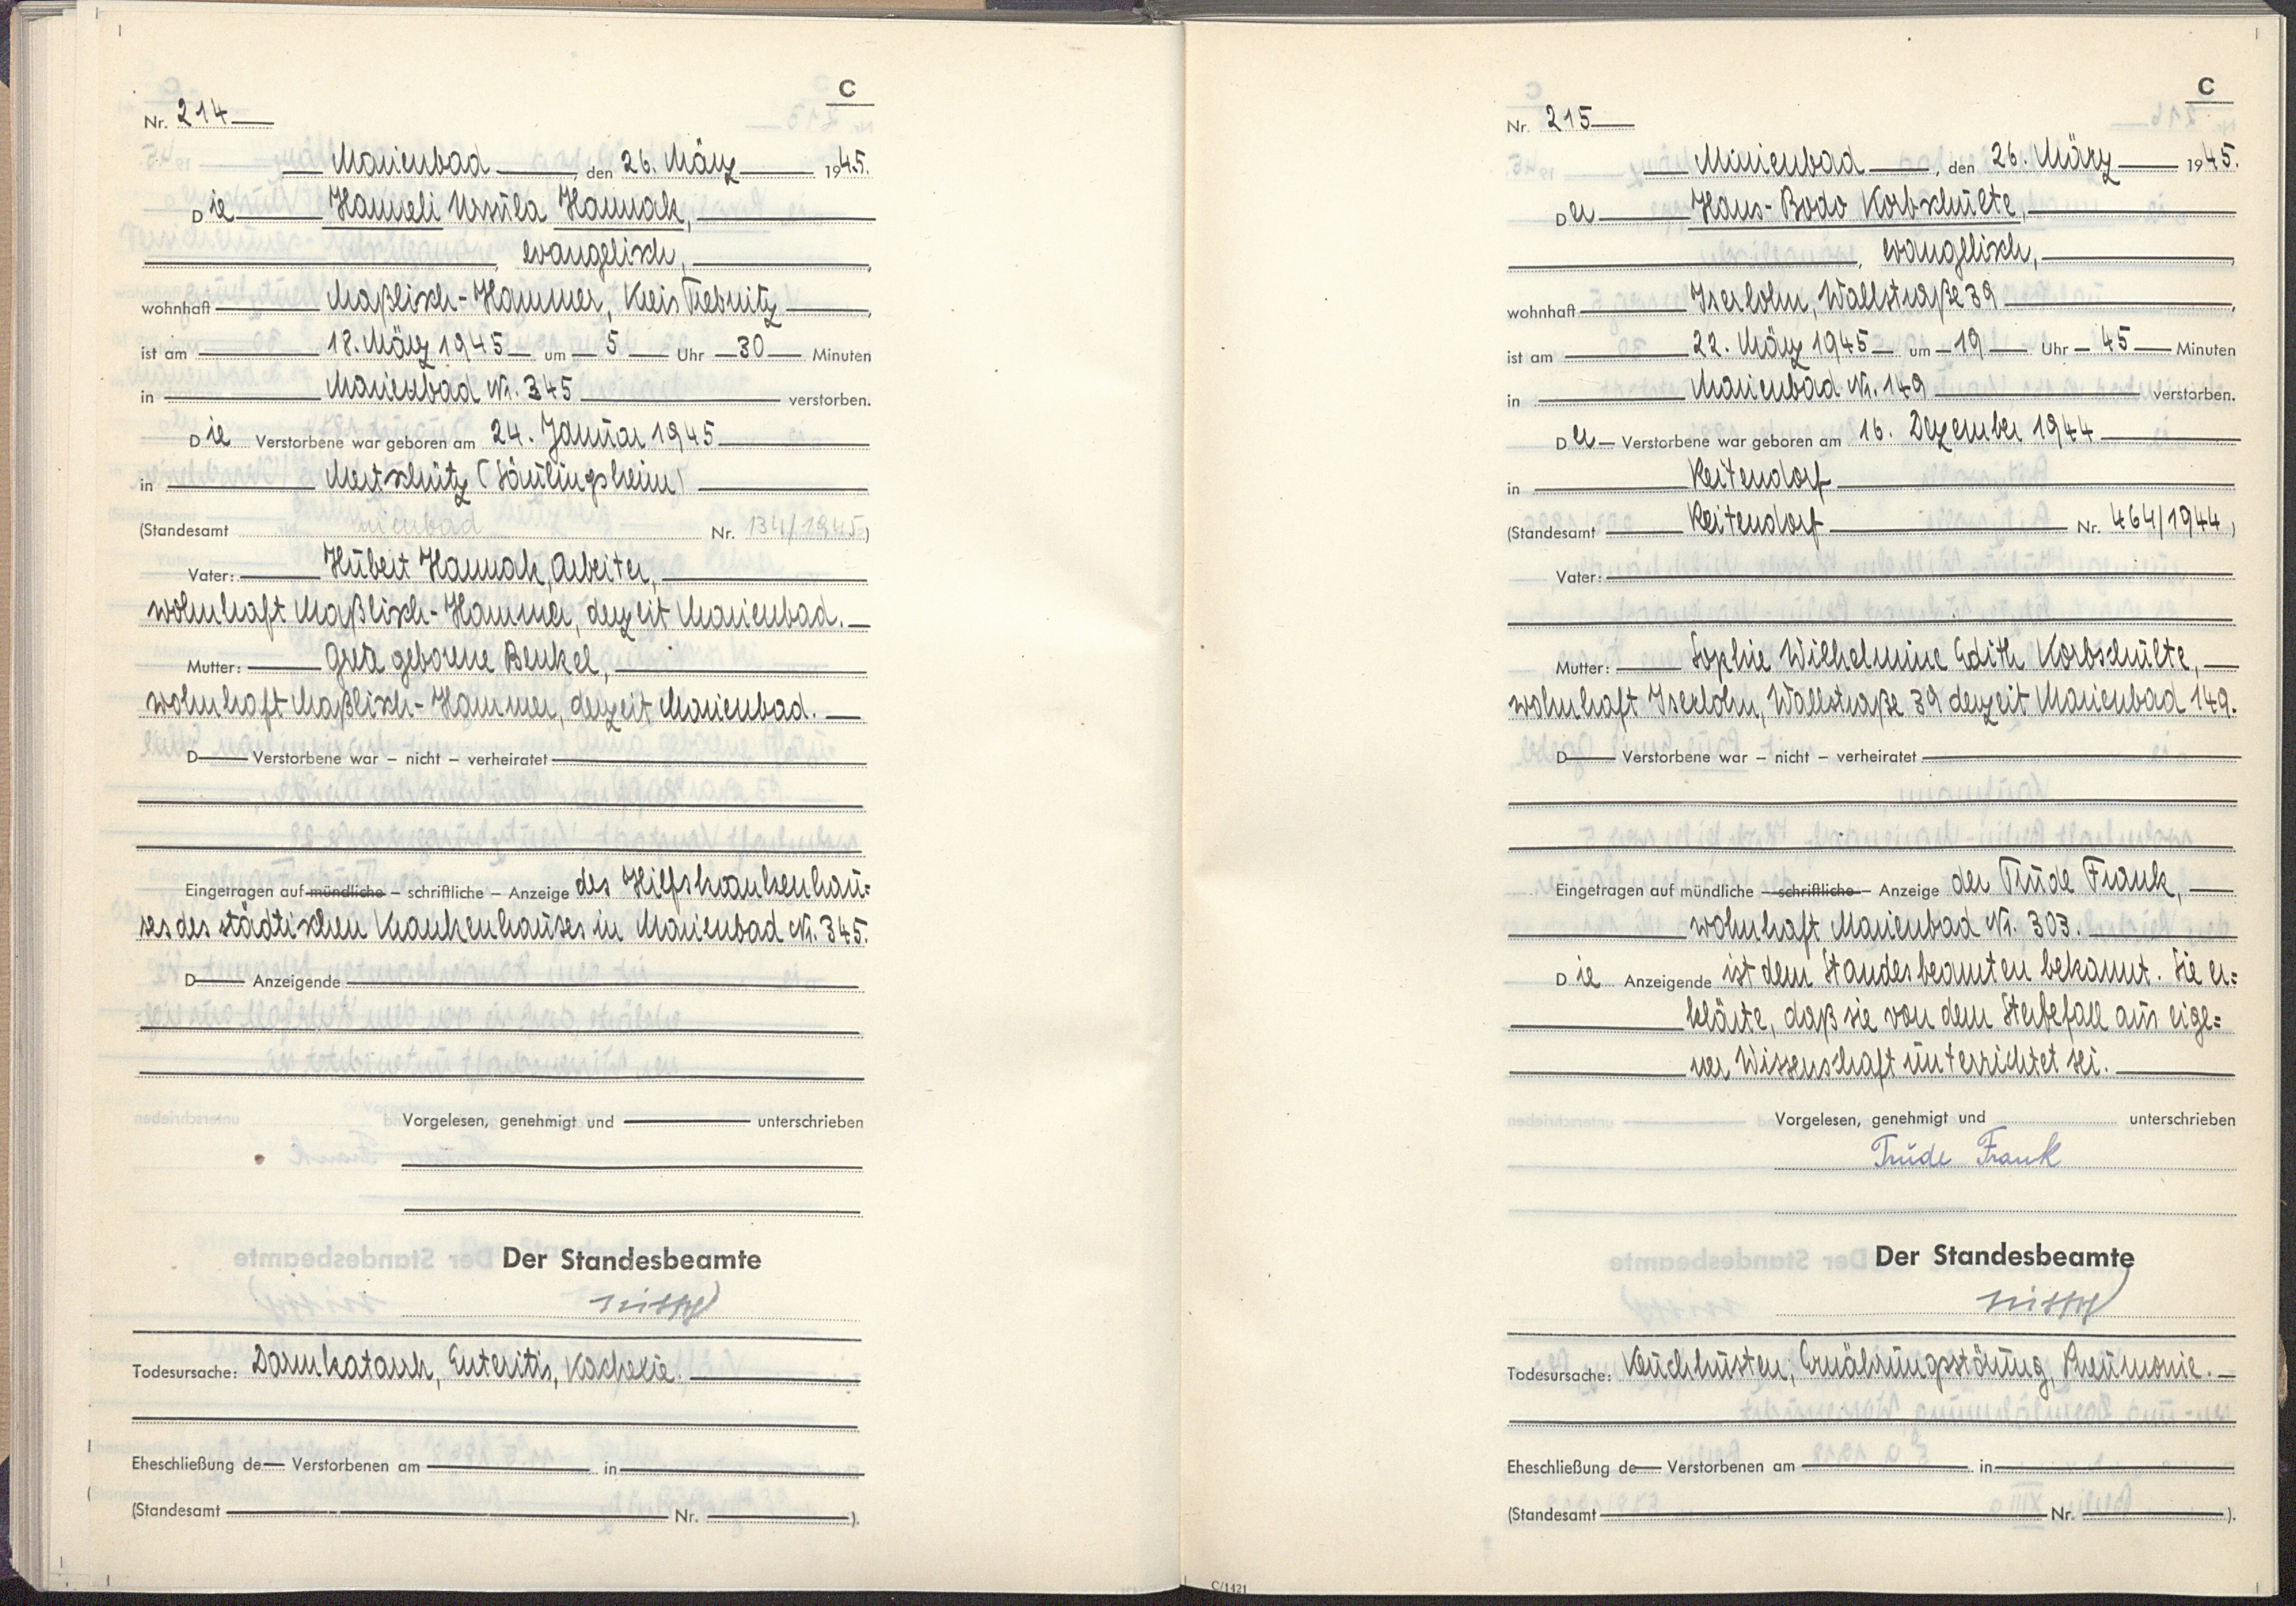 C
Nr. 214
Marienbad, den 26. März 1945.
Die Hanneli Ursula Hannak,
, evangelisch,
wohnhaft Maßlisch-Hammer, Kreis Trebnitz,
ist am 18. März 1945 um 5 Uhr 30 Minuten
in Marienbad Nr. 345 verstorben.
Die Verstorbene war geboren am 24. Januar 1945
in Mertschütz (Säulingsheim)
(Standesamt Nr. 134/1945)
Vater: Hubert Hannak, Arbeiter,
wohnhaft Maßlisch-Hammer, derzeit Marienbad.
Mutter: Greta geborene Benkel,
wohnhaft Maßlisch-Hammer, derzeit Marienbad.
D Verstorbene war – nicht – verheiratet
Eingetragen auf mündliche – schriftliche – Anzeige des Hilfskrankenhau=
ses des städtischen Krankenhauses in Marienbad Nr. 345.
D Anzeigende
Vorgelesen, genehmigt und unterschrieben
Der Standesbeamte
Todesursache: Darmkatarrh, Enteritis, Kachexie.
Eheschließung de Verstorbenen am in
(Standesamt Nr. ).
C
Nr. 215
Marienbad, den 26. März 1945.
Der Hans-Bodo Korbschulte,
, evangelisch,
wohnhaft Iserlohn, Wallstraße 39,
ist am 22. März 1945 um 19 Uhr 45 Minuten
in Marienbad Nr. 149 verstorben.
Der Verstorbene war geboren am 16. Dezember 1944
in Reitendorf
(Standesamt Reitendorf Nr. 464/1944)
Vater:
Mutter: Sophie Wilhelmine Edith Korbschulte,
wohnhaft Iserlohn, Wallstraße 39 derzeit Marienbad 149.
D Verstorbene war – nicht – verheiratet
Eingetragen auf mündliche – schriftliche – Anzeige der Trude Frank,
wohnhaft Marienbad Nr. 303.
Die Anzeigende ist dem Standesbeamten bekannt. Sie er=
klärte, daß sie von dem Sterbefall aus eige=
ner Wissenschaft unterrichtet sei.
Vorgelesen, genehmigt und unterschrieben
Trude Frank
Der Standesbeamte
Todesursache: Keuchhusten, Ernährungsstörung, Pneumonie.
Eheschließung de Verstorbenen am in
(Standesamt Nr. ).
C/1421